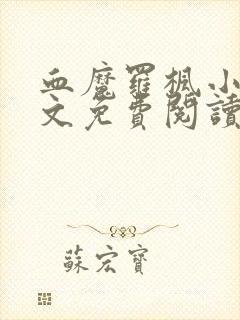 血魔羅楓小
文免費閱讀
蘇宏寶